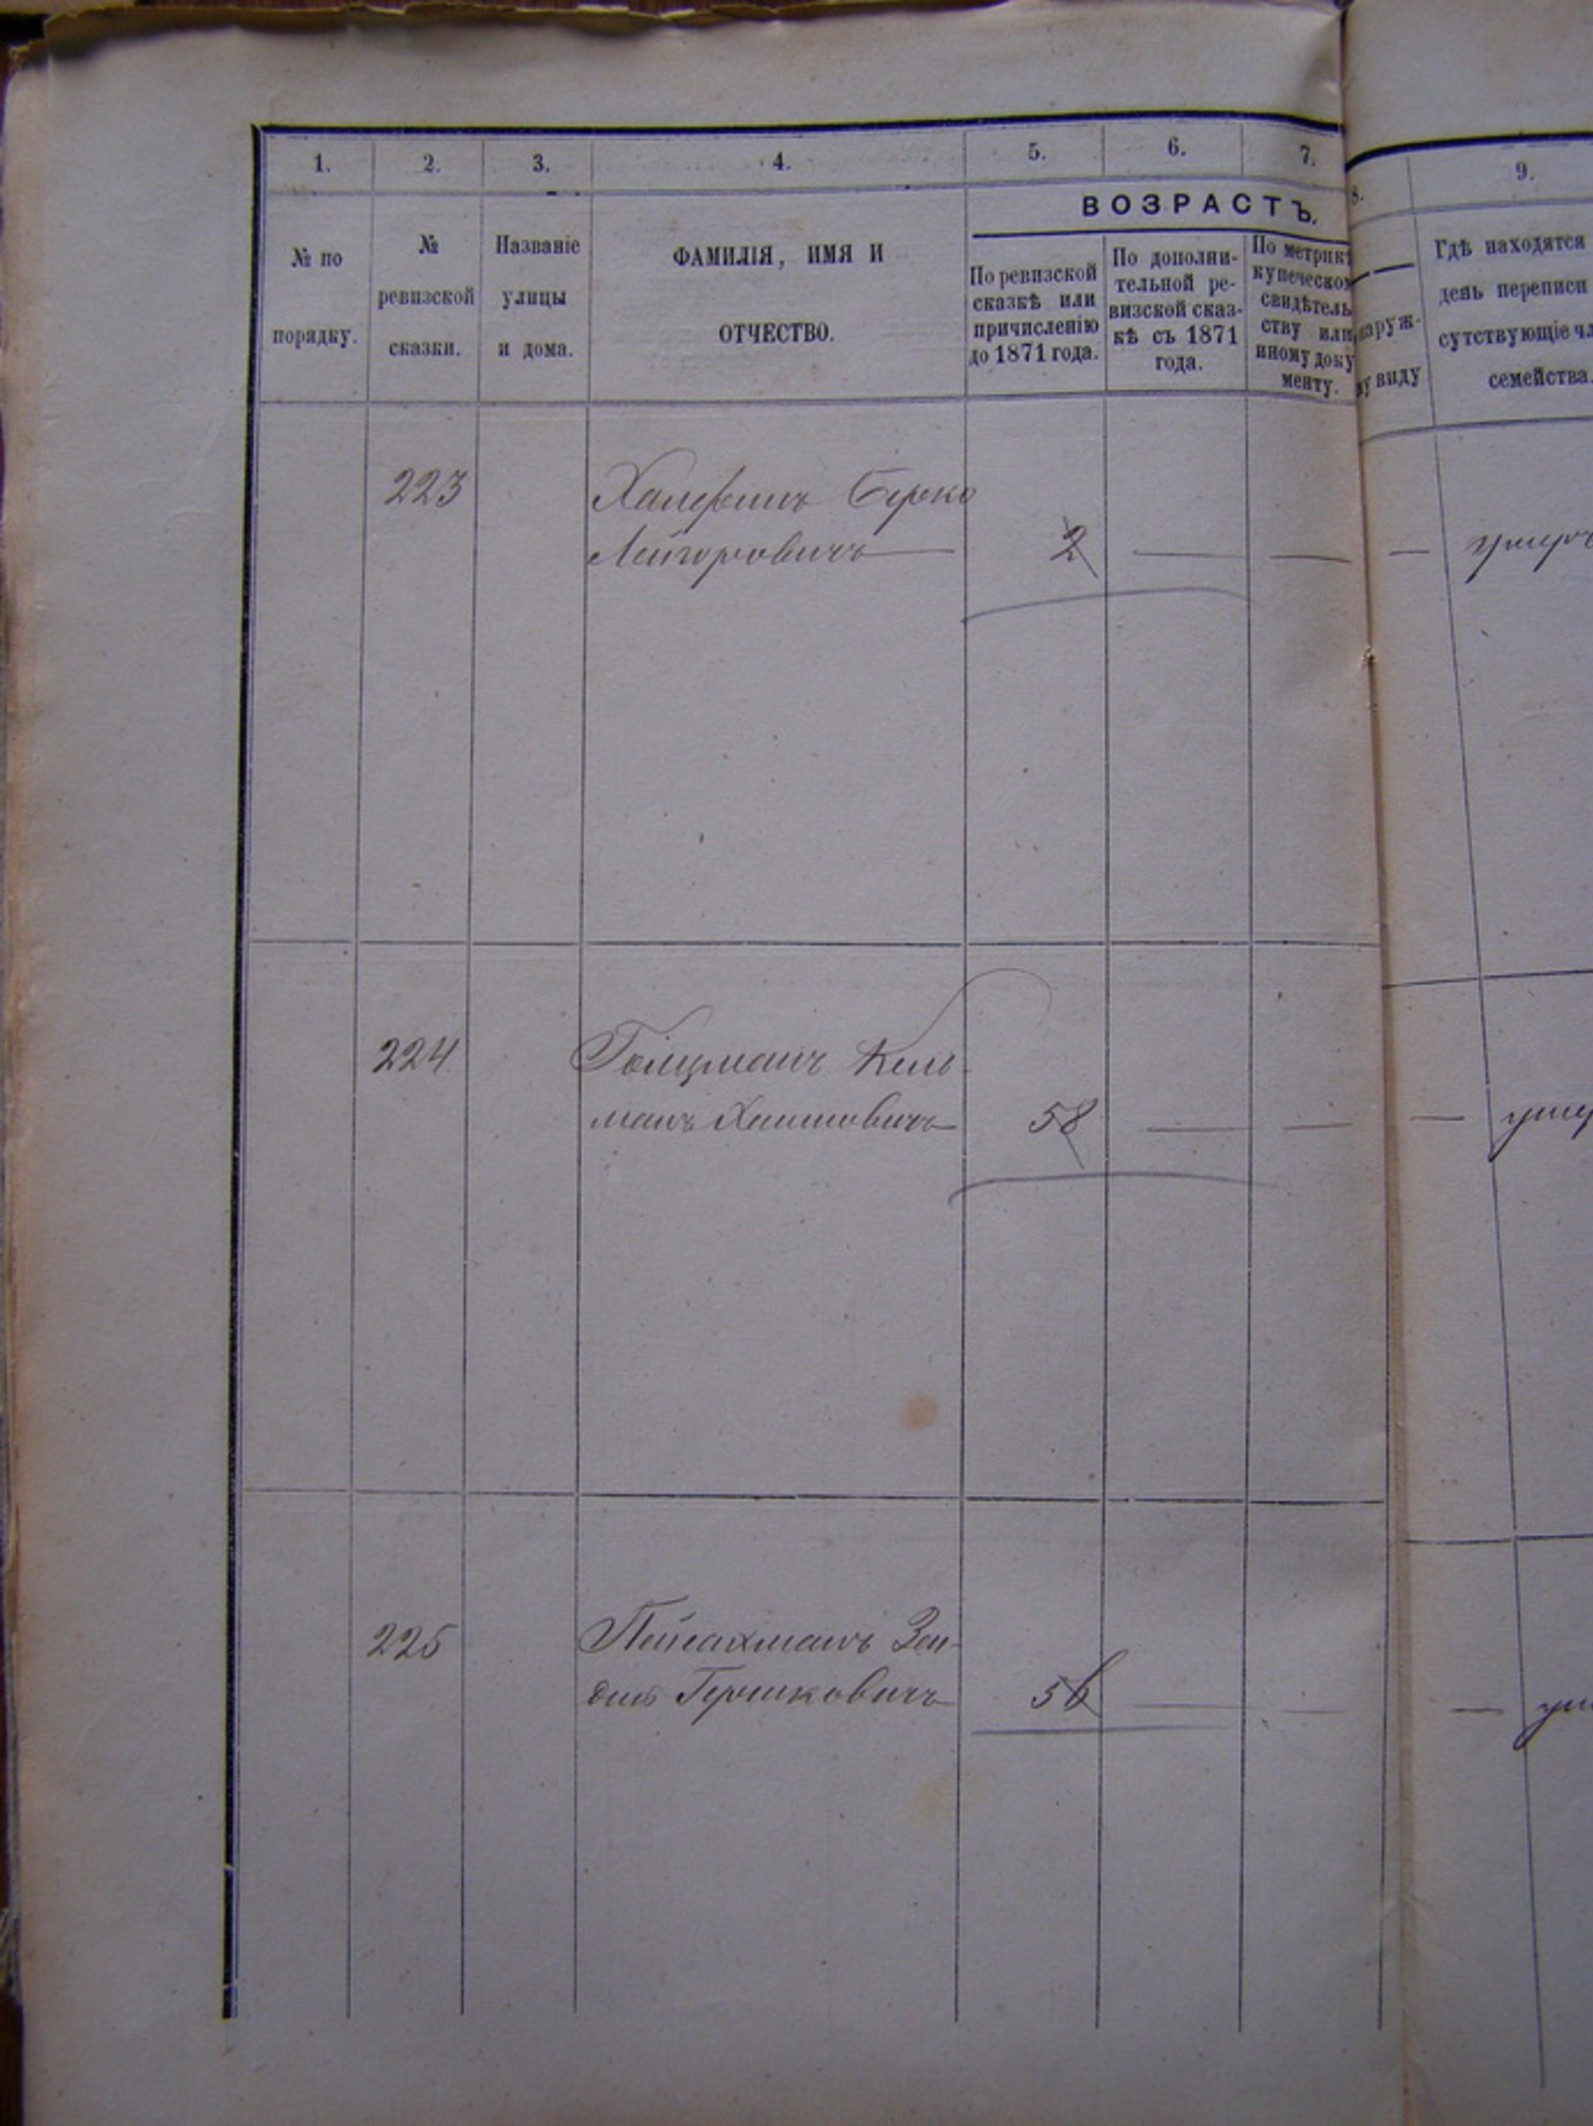 1. 2. 3. 4. 5. 6. 7. 8. 9.
ВОЗРАСТЪ.
№ по
порядку.
№
ревизской
сказки.
Названіе
улицы
и дома.
ФАМИЛІЯ, ИМЯ И
ОТЧЕСТВО.
По ревизской
сказкѣ или
причисленію
до 1871 года.
По дополни-
тельной ре-
визской сказ-
кѣ съ 1871
года.
По метрик
купеческом
свидѣтель
ству или
иному доку
менту.
наруж-
у виду
Гдѣ находятся
день переписи
сутствующіе чл
семейства.
223 Берко
2 — — —
224 Гольцманъ Кель-
манъ Хаимовичъ 58 — — —
225 Пейсахманъ Зен-
Гершковичъ 56 — — —